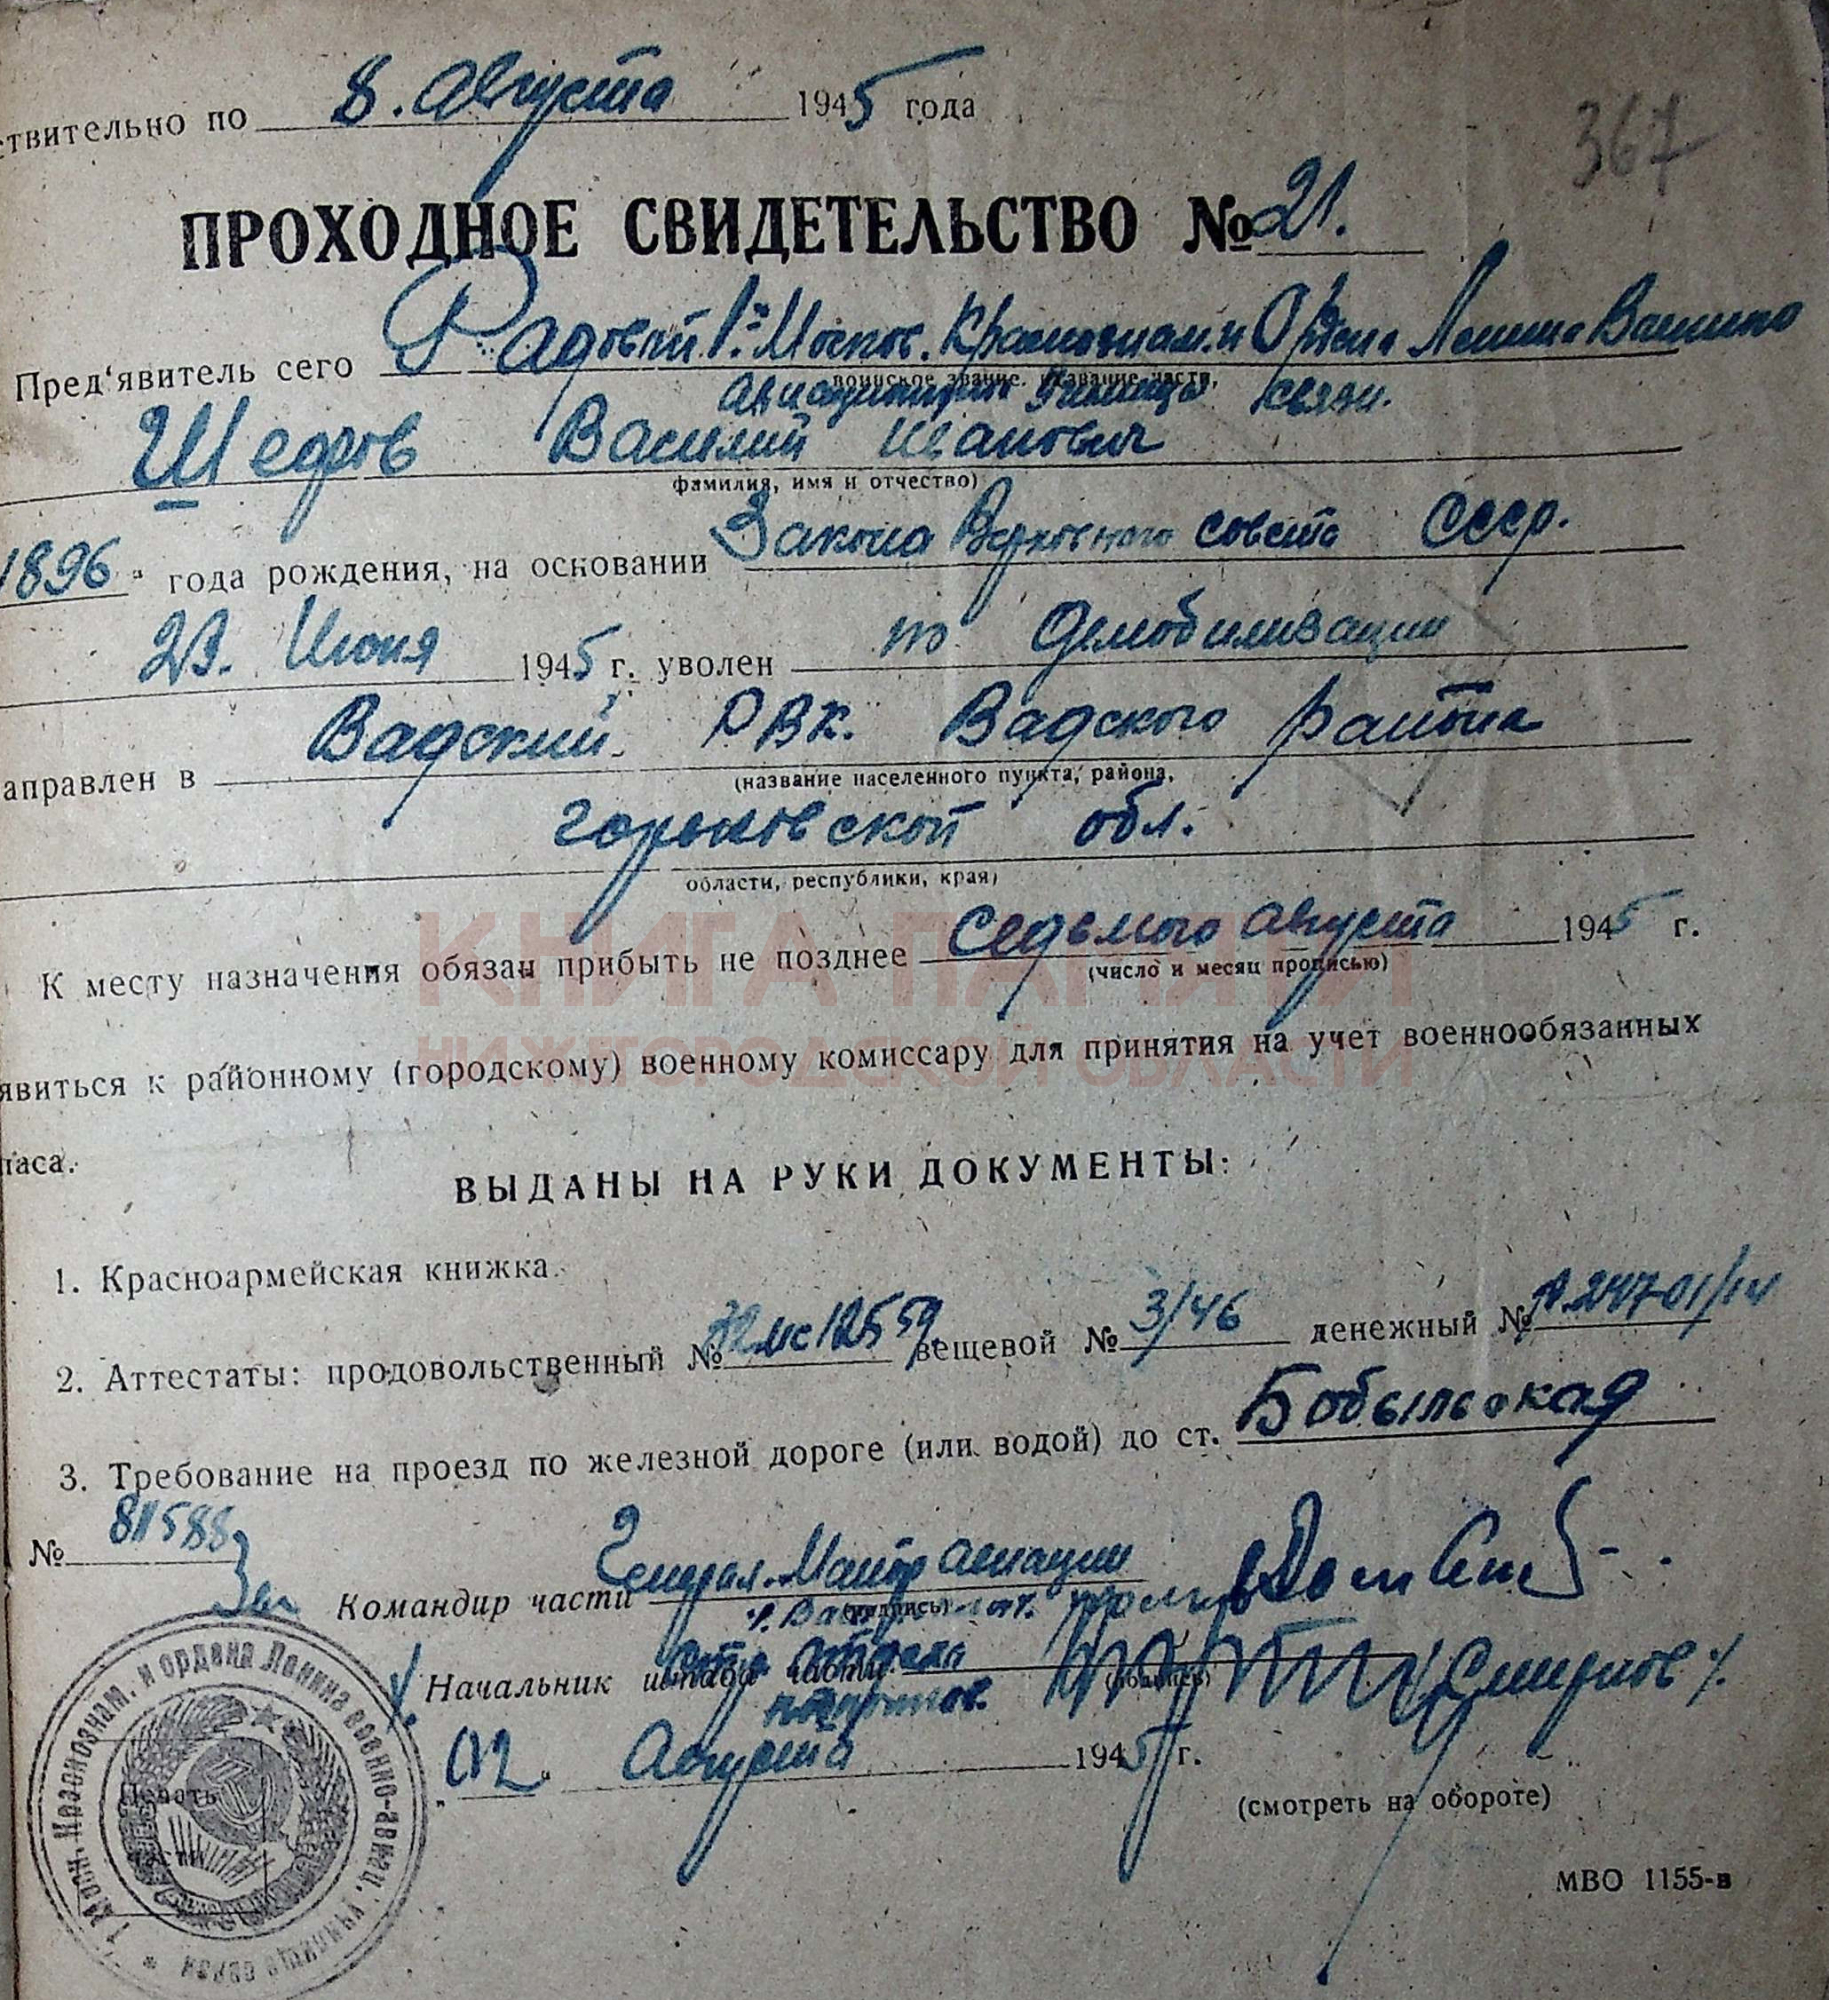 ствительно по 8. Августа 1945 года
367
ПРОХОДНОЕ СВИДЕТЕЛЬСТВО № 21.
Пред'явитель сего Рядовой 1й Москов. Краснознам. и Ордена Ленина Военно
воинское звание, название части,
Авиационного Училища связи.
Шедров Василий Иванович
фамилия, имя и отчество)
1896 года рождения, на основании Закона Верховного Совета СССР.
23. Июня 1945 г. уволен по демобилизации
аправлен в Вадский РВК. Вадского района
(название населенного пункта, района,
Горьковской обл.
области, республики, края)
К месту назначения обязан прибыть не позднее Седьмого Августа 1945 г.
(число и месяц прописью)
КНИГА ПАМЯТИ
НИЖЕГОРОДСКОЙ ОБЛАСТИ
явиться к районному (городскому) военному комиссару для принятия на учет военнообязанных
паса.
ВЫДАНЫ НА РУКИ ДОКУМЕНТЫ:
1. Красноармейская книжка.
2. Аттестаты: продовольственный № вещевой № 3/46 денежный №
3. Требование на проезд по железной дороге (или водой) до ст. Бобыльская
№ 811588
Командир части Генерал-Майор Авиации
(подпись)
Начальник штаба части /Смирнов/.
(подпись)
"02" Августа 1945 г.
(смотреть на обороте)
Печать
части
1 Моск. Краснознам. и ордена Ленина военно-авиац. училище связи
МВО 1155-в